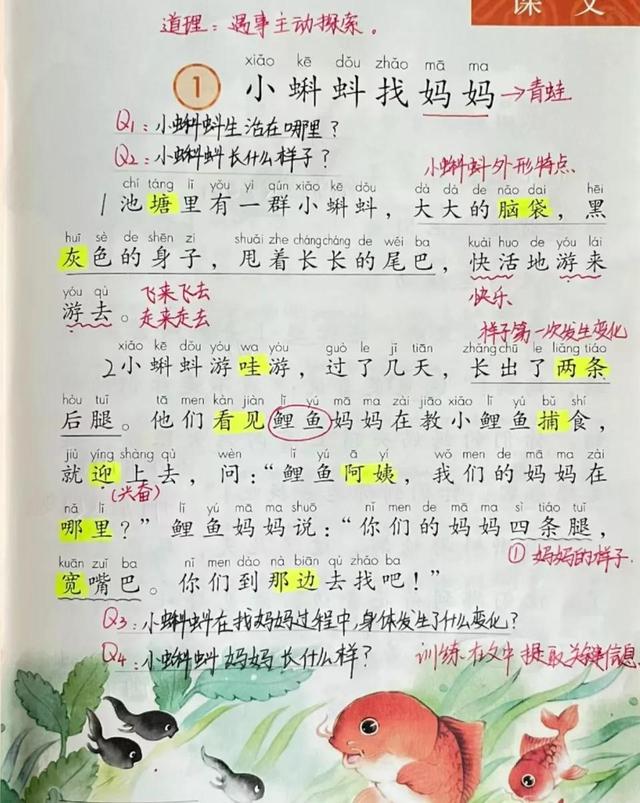 课 文
道理：遇事主动探索。
xiǎo kē dǒu zhǎo mā ma
1 小蝌蚪找妈妈 →青蛙
Q1：小蝌蚪生活在哪里？
Q2：小蝌蚪长什么样子？
小蝌蚪外形特点
chí táng lǐ yǒu yì qún xiǎo kē dǒu dà dà de nǎo dai hēi
1池塘里有一群小蝌蚪，大大的脑袋，黑
huī sè de shēn zi shuǎi zhe cháng cháng de wěi ba kuài huo de yóu lái
灰色的身子，甩着长长的尾巴，快活地游来
yóu qù
游去。
飞来飞去
走来走去
快乐
样子第一次发生变化
xiǎo kē dǒu yóu wa yóu guò le jǐ tiān zhǎng chū le liǎng tiáo
2小蝌蚪游哇游，过了几天，长出了两条
hòu tuǐ tā men kàn jiàn lǐ yú mā ma zài jiāo xiǎo lǐ yú bǔ shí
后腿。他们看见鲤鱼妈妈在教小鲤鱼捕食，
jiù yíng shàng qù wèn lǐ yú ā yí wǒ men de mā ma zài
就迎上去，问：“鲤鱼阿姨，我们的妈妈在
（兴奋）
nǎ lǐ lǐ yú mā ma shuō nǐ men de mā ma sì tiáo tuǐ
哪里？”鲤鱼妈妈说：“你们的妈妈四条腿，
kuān zuǐ ba nǐ men dào nà biān qù zhǎo ba
宽嘴巴。你们到那边去找吧！”
①妈妈的样子
Q3：小蝌蚪在找妈妈过程中，身体发生了什么变化？
Q4：小蝌蚪妈妈长什么样？
训练在文中提取关键信息